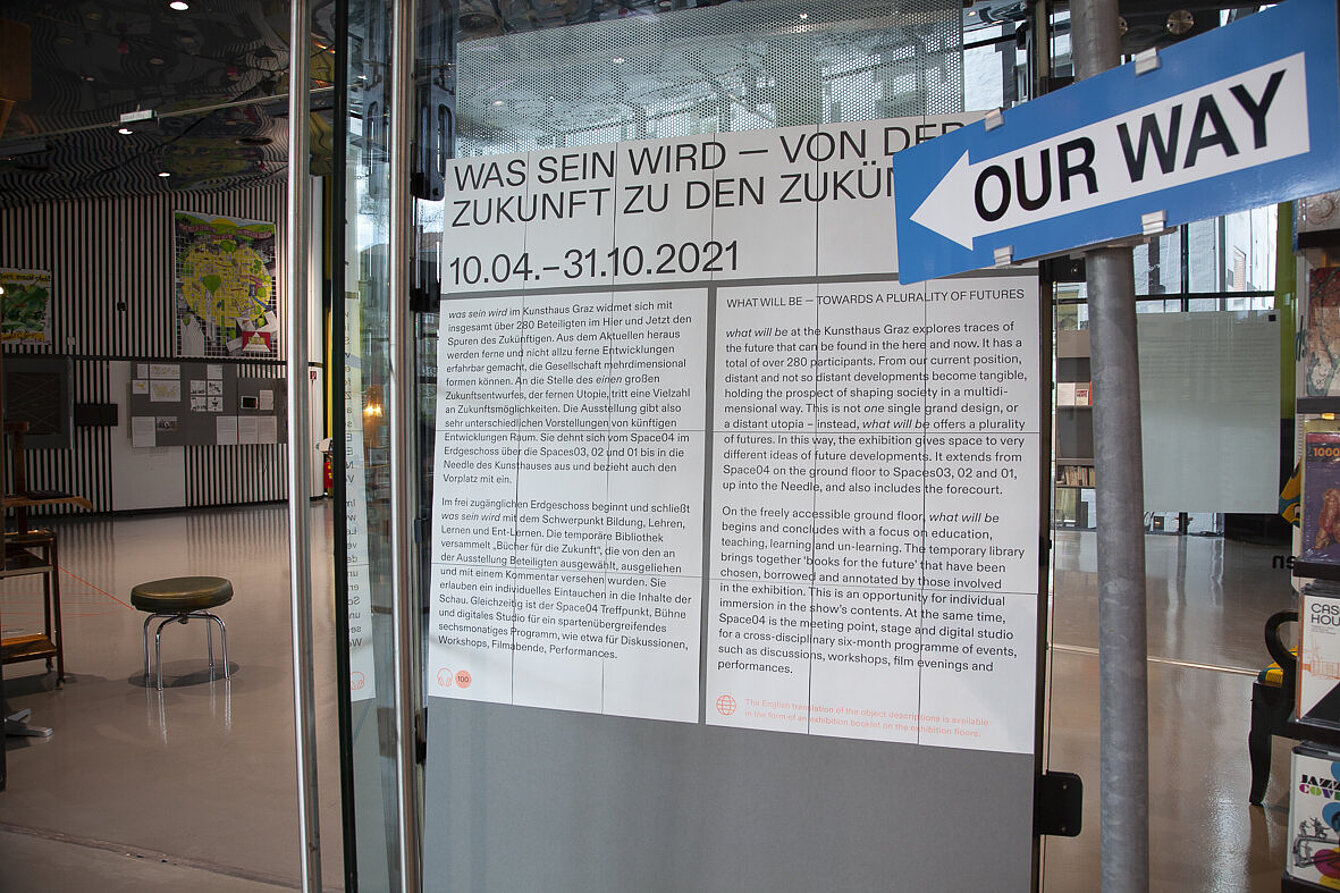 WAS SEIN WIRD — VON DER
ZUKUNFT ZU DEN ZUKÜN
10.04.–31.10.2021
was sein wird im Kunsthaus Graz widmet sich mit
insgesamt über 280 Beteiligten im Hier und Jetzt den
Spuren des Zukünftigen. Aus dem Aktuellen heraus
werden ferne und nicht allzu ferne Entwicklungen
erfahrbar gemacht, die Gesellschaft mehrdimensional
formen können. An die Stelle des einen großen
Zukunftsentwurfes, der fernen Utopie, tritt eine Vielzahl
an Zukunftsmöglichkeiten. Die Ausstellung gibt also
sehr unterschiedlichen Vorstellungen von künftigen
Entwicklungen Raum. Sie dehnt sich vom Space04 im
Erdgeschoss über die Spaces03, 02 und 01 bis in die
Needle des Kunsthauses aus und bezieht auch den
Vorplatz mit ein.
Im frei zugänglichen Erdgeschoss beginnt und schließt
was sein wird mit dem Schwerpunkt Bildung, Lehren,
Lernen und Ent-Lernen. Die temporäre Bibliothek
versammelt „Bücher für die Zukunft“, die von den an
der Ausstellung Beteiligten ausgewählt, ausgeliehen
und mit einem Kommentar versehen wurden. Sie
erlauben ein individuelles Eintauchen in die Inhalte der
Schau. Gleichzeitig ist der Space04 Treffpunkt, Bühne
und digitales Studio für ein spartenübergreifendes
sechsmonatiges Programm, wie etwa für Diskussionen,
Workshops, Filmabende, Performances.
100
WHAT WILL BE — TOWARDS A PLURALITY OF FUTURES
what will be at the Kunsthaus Graz explores traces of
the future that can be found in the here and now. It has a
total of over 280 participants. From our current position,
distant and not so distant developments become tangible,
holding the prospect of shaping society in a multidi-
mensional way. This is not one single grand design, or
a distant utopia – instead, what will be offers a plurality
of futures. In this way, the exhibition gives space to very
different ideas of future developments. It extends from
Space04 on the ground floor to Spaces03, 02 and 01,
up into the Needle, and also includes the forecourt.
On the freely accessible ground floor, what will be
begins and concludes with a focus on education,
teaching, learning and un-learning. The temporary library
brings together ‘books for the future’ that have been
chosen, borrowed and annotated by those involved
in the exhibition. This is an opportunity for individual
immersion in the show’s contents. At the same time,
Space04 is the meeting point, stage and digital studio
for a cross-disciplinary six-month programme of events,
such as discussions, workshops, film evenings and
performances.
The English translation of the object descriptions is available
in the form of an exhibition booklet on the exhibition floors.
OUR WAY
1000
CAS
HOU
JAZZ
COVE